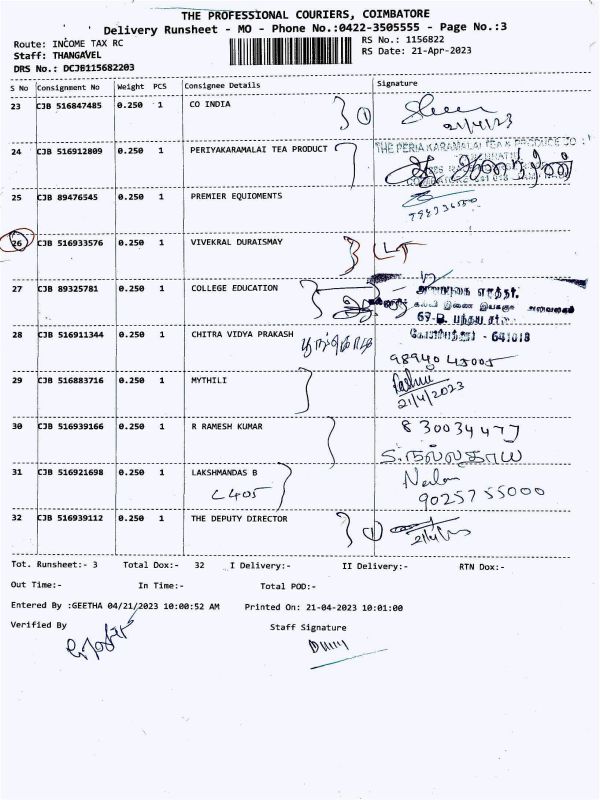 THE PROFESSIONAL COURIERS, COIMBATORE
Delivery Runsheet - MO - Phone No.:0422-3505555 - Page No.:3
Route: INCOME TAX RC
RS No.: 1156822
Staff: THANGAVEL
RS Date: 21-Apr-2023
DRS No.: DCJB115682203
S No Consignment No Weight PCS Consignee Details Signature
23 CJB 516847485 0.250 1 CO INDIA 1
21/4/23
24 CJB 516912809 0.250 1 PERIYAKARAMALAI TEA PRODUCT THE PERIA KARAMALAI TEA & PRODUCE CO
25 CJB 89476545 0.250 1 PREMIER EQUIOMENTS
26 CJB 516933576 0.250 1 VIVEKRAL DURAISMAY
27 CJB 89325781 0.250 1 COLLEGE EDUCATION
28 CJB 516911344 0.250 1 CHITRA VIDYA PRAKASH - 641018
29 CJB 516883716 0.250 1 MYTHILI
21/4/2023
30 CJB 516939166 0.250 1 R RAMESH KUMAR
31 CJB 516921698 0.250 1 LAKSHMANDAS B
9025755000
32 CJB 516939112 0.250 1 THE DEPUTY DIRECTOR 1
Tot. Runsheet:- 3 Total Dox:- 32 I Delivery:- II Delivery:- RTN Dox:-
Out Time:- In Time:- Total POD:-
Entered By :GEETHA 04/21/2023 10:00:52 AM Printed On: 21-04-2023 10:01:00
Verified By Staff Signature